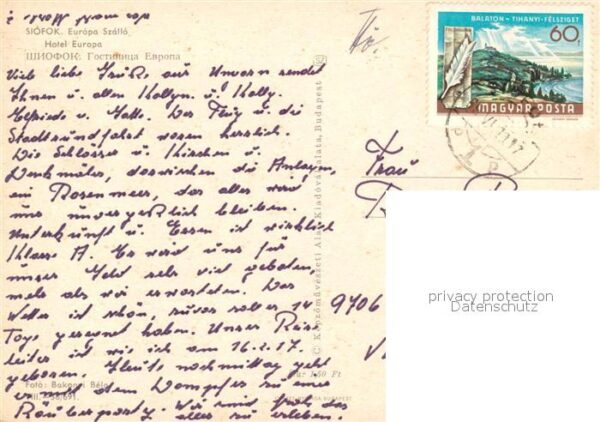 SIÓFOK. Európa Szálló
Hotel Europa
ШИОФОК: Гостиница Европа
Viele liebe Grüße aus Ungarn sendet
Ihnen u. allen Kolleg. u. Kolleg.
Elfriede u. Gatte. Der Flug u. die
Stadtrundfahrt waren herrlich.
Die Schlösser u. Kirchen u.
Denkmäler, dazwischen die Anlagen,
ein Rosenmeer, das alles wird
uns unvergeßlich bleiben.
Unterkunft u. Essen ist wirklich
Klasse A. Es wird uns für
unser Geld sehr viel geboten,
mehr als wir erwarteten. Das
Wetter ist schön, zuvor soll es 14
Tage geregnet haben. Unser Reise-
leiter ist wie ich am 16.2.17.
geboren. Heute nachmittag geht
es mit dem Dampfer zu einer
Räuberparty. Wir sind froh das
alles zu erleben.
Foto: Bakonyi Béla
(C) Képzőművészeti Alap Kiadóvállalata, Budapest
Ára: 1,50 Ft
BALATON - TIHANYI-FÉLSZIGET
60f
MAGYAR POSTA
Frau
9706
privacy protection
Datenschutz